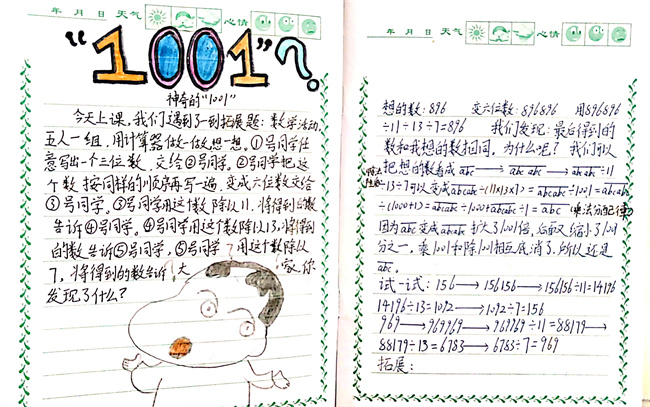 年 月 日 天气 心情
"1001"?
神奇的"1001"
今天上课,我们遇到了一到拓展题:数学活动,
五人一组,用计算器做一做,想一想。①号同学任
意写出一个三位数,交给②号同学。②号同学把这
个数按同样的顺序再写一遍,变成六位数交给
③号同学。③号同学用这个数除以11,将得到的数
告诉④号同学。④号同学用这个数除以13,将得到
的数告诉⑤号同学,⑤号同学用这个数除以
7,将得到的数告诉大家,你
发现了什么?
年 月 日 天气 心情
想的数:896 变六位数:896896 用896896
÷11÷13÷7=896 我们发现:最后得到的
数和我想的数相同。为什么呢?我们可以
把想的数看成abc→abcabc→abcabc÷11
÷13÷7可以变成abcabc÷(11×13×7)=abcabc÷1001=abcabc
÷(1000+1)=abcabc÷1000+abcabc÷1=abc(乘法分配律)
因为abc变成abcabc扩大了1001倍,后面又缩小了1001
分之一,乘1001和除1001相互底消了.所以还是
abc.
试一试:156→156156→156156÷11=14196
14196÷13=1092→1092÷7=156
969→969969→969969÷11=88179→
88179÷13=6783→6783÷7=969
拓展: